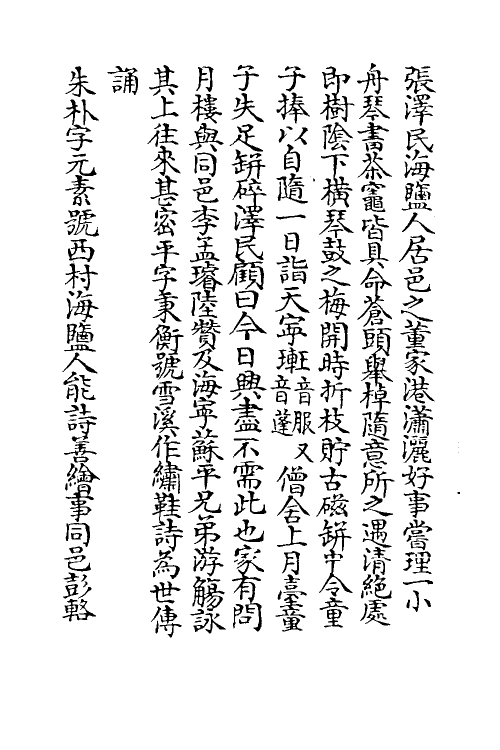 張澤民海鹽人居邑之董家港瀟灑好事嘗理一小
舟琴書茶竈皆具命蒼頭舉棹隨意所之遇清絶處
即樹陰下橫琴鼓之梅開時折枝貯古磁缾中令童
子捧以自隨一日詣天寜𤦲音服又音蓬僧舍上月臺童
子失足缾碎澤民顧曰今日興盡不需此也家有問
月樓與同邑李孟璿陸贊及海寜蘇平兄弟游觴詠
其上往來甚宻平字秉衡號雪溪作繡鞋詩為世傳
誦
朱朴字元素號西村海鹽人能詩善繪事同邑彭輅